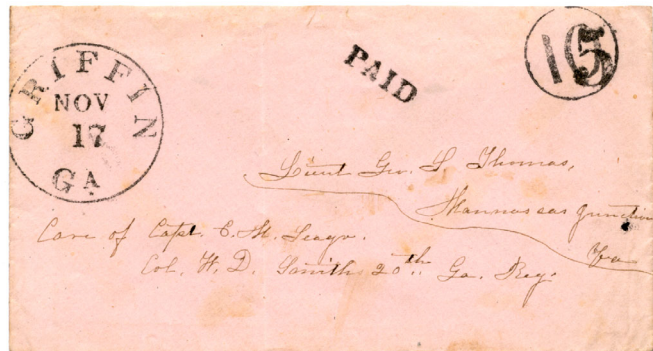 GRIFFIN
NOV
17
GA
PAID
5
Lieut Geo. S Thomas,
Mannassas Junction
Va
Care of Capt. C. M.
Col. W. D. Smith 20th Ga. Reg.